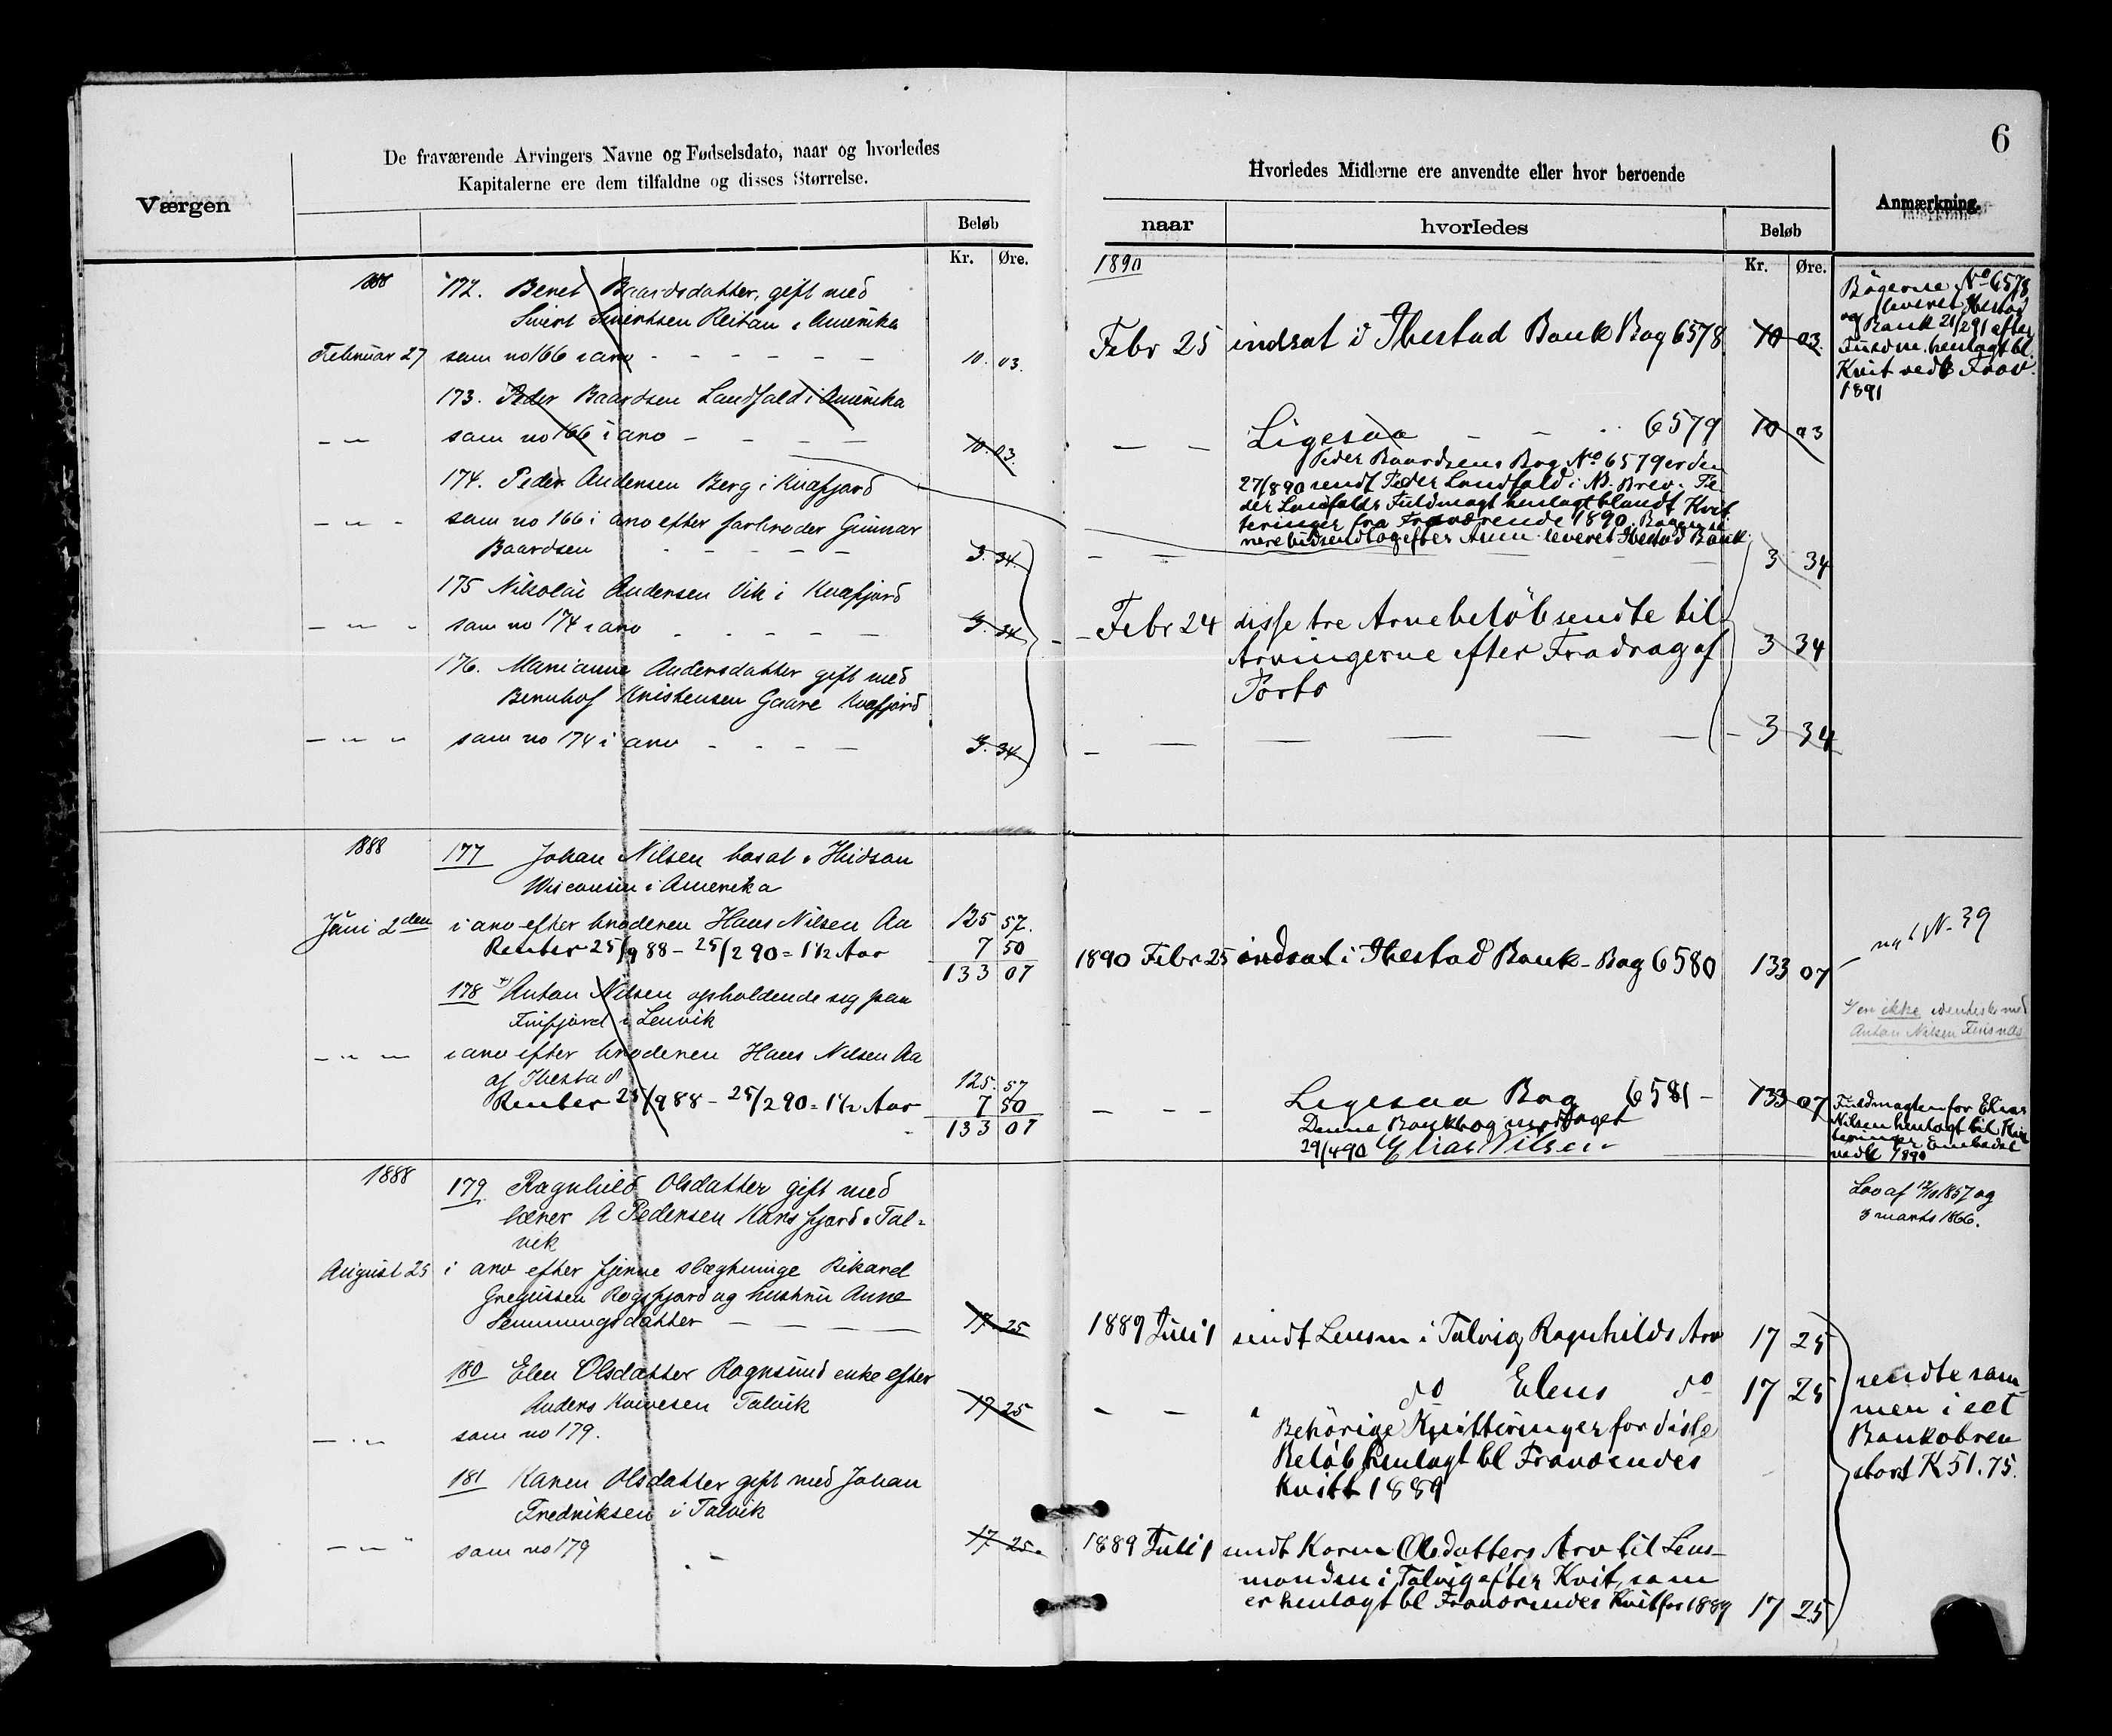 6
De fraværende Arvingers Navne og Fødselsdato, naar og hvorledes
Kapitalerne ere dem tilfaldne og disses Størrelse.
Værgen
Beløb
Kr. Øre.
1888 172. Beret Baardsdatter, gift med
Sivert Sivertsen Reitan i Amerika
Februar 27 sam no 166 i arv - - - - - - 10. 03.
173. Peder Baardsen Landfald i Amerika
— „ — sam no 166 i arv - - - - 10. 03.
174. Peder Andersen Berg i Kvæfjord
— „ - sam no 166 i arv efter farbroder Gunnar
Baardsen - - - - - 3. 34.
175 Nikolai Andersen Vik i Kvæfjord
— „ - sam no 174 i arv - - - - - 3. 34
176. Marianne Andersdatter gift med
Bernhof Kristensen Gaare Kvæfjord
— „ „ sam no 174 i arv - - - - 3. 34
1888 177 Johan Nilsen bosat i Hudson
Wisconsin i Amerika
Juni 2den i arv efter broderen Hans Nilsen Aa 125 57.
Renter 25/9 88 – 25/2 90 = 1 1/2 Aar 7 50
133 07
178 Anton Nilsen opholdende sig paa
Finfjord i Lenvik
— „ — i arv efter broderen Hans Nilsen Aa
af Ibestad 125. 57
Renter 25/9 88 – 25/2 90 = 1 1/2 Aar 7 50
133 07
1888 179 Ragnhild Olsdatter gift med
lærer A Pedersen Korsfjord i Tal=
vik
August 25 i arv efter fjerne slægtninge Rikard
Gregussen Rogsfjord og hustru Anne
Semmingsdatter — — — — 17. 25
180 Elen Olsdatter Rognsund enke efter
Anders Talvik 17 25
— „ — sam no 179.
181 Karen Olsdatter gift med Johan
Fredriksen i Talvik
— „ — sam no 179 - — 17. 25.
Hvorledes Midlerne ere anvendte eller hvor beroende
Anmærkning.
naar hvorledes Beløb
Kr. Øre.
1890
Febr 25 indsat i Ibestad Bank Bog 6578 10 03.
Bøgerne No 6578
leveret Ibestad
og Bank 21/2 91 efter
Fuldm. henlagt bl.
Kvit vedk Frav.
1891
— — Ligesaa - - 6579 10 03
Peder Baardsens Bog No 6579 er den
27/8 90 sendt Peder Landfald i A. Brev. Pe
der Landfalds Fuldmagt henlagt blandt Kvit
teringer fra Fraværende 1890. Bogen se
nere tilbsendt og efter Anm. leveret Ibestad Bank.
- — — 3 34
- Febr 24 disse tre Arvebeløb sendte til
Arvingerne efter Fradrag af
Porto 3 34
- — — — — — - 3 34
1890 Febr 25 indsat i Ibestad Bank - Bog 6580 133 07
N. 39
er ikke identisk med
Anton Nilsen Finsnæs
— — - Ligesaa Bog 6581 - 133 07
Denne Bankbog modtaget
29/4 90 Elias Nilsen
Fuldmagten for Elias
Nilsen henlagt til Kvit
teringer Embedet
vedk 1890
Lov af 12/10 1857 og
3 marts 1866.
1889 Juli 1 sendt Lensm i Talvig Ragnhilds Arv 17 25
- — do Elens do 17 25
Behörige Kvitteringer for disse
Beløb henlagt bl Fraværendes
Kvitt 1889
sendte sam-
men i eet
Bankobrev
stort K 51.75.
1889 Juli 1 sendt Karen Olsdatters Arv til Lens-
manden i Talvig efter Kvit, som
er henlagt bl Fraværendes Kvit for 1889 17 25